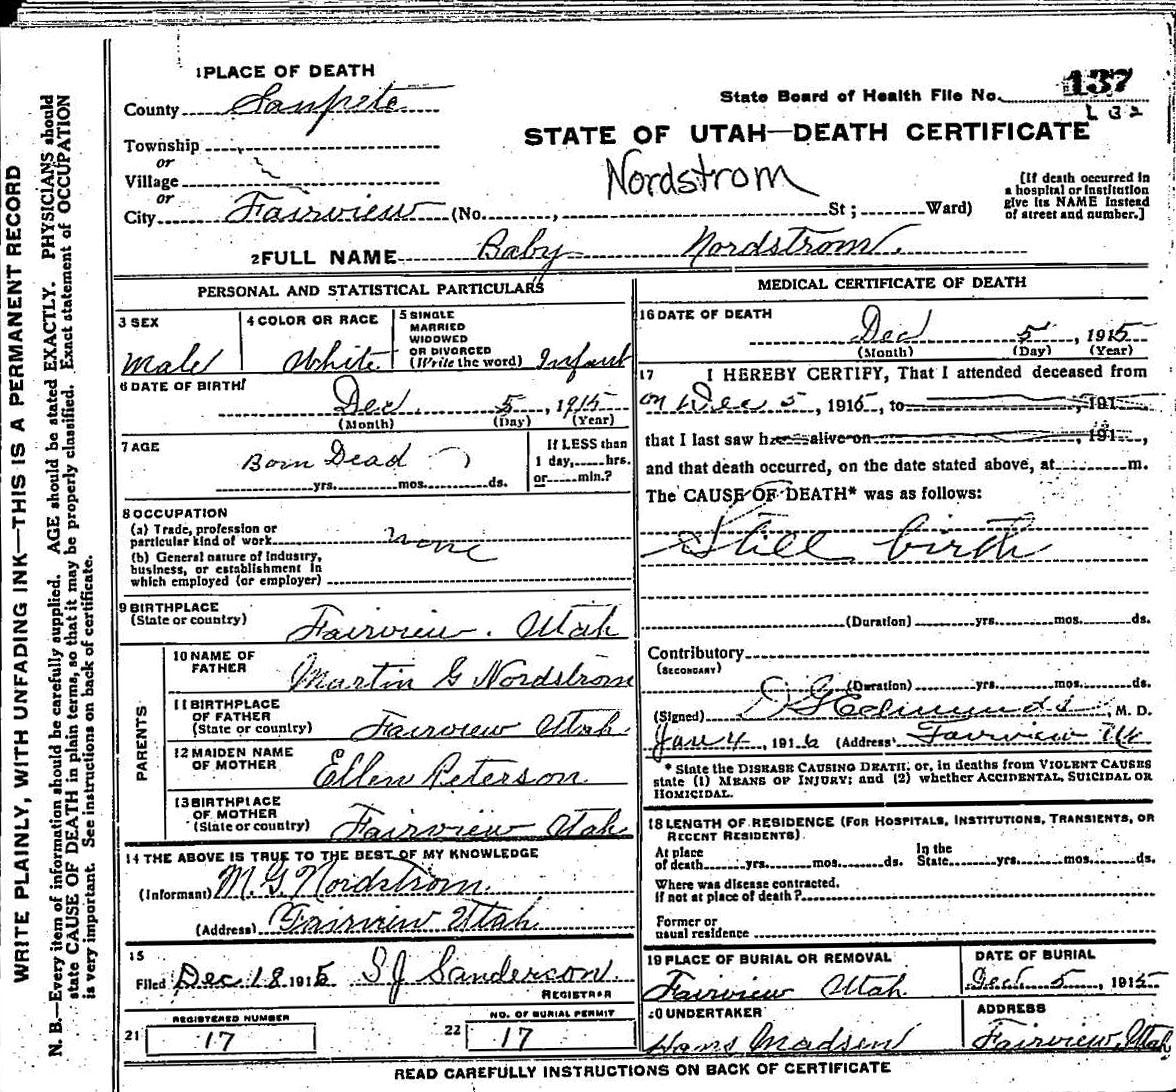 1 PLACE OF DEATH
County Sanpete
State Board of Health File No. 137
L 32
Township
or
Village
or
City Fairview (No. , St ; Ward)
STATE OF UTAH—DEATH CERTIFICATE
Nordstrom
[If death occurred in
a hospital or institution
give its NAME instead
of street and number.]
2 FULL NAME Baby Nordstrom
PERSONAL AND STATISTICAL PARTICULARS
3 SEX
Male
4 COLOR OR RACE
White
5 SINGLE
MARRIED
WIDOWED
OR DIVORCED
(Write the word) Infant
6 DATE OF BIRTH
Dec 5, 1915
(Month) (Day) (Year)
7 AGE
Born Dead
yrs. mos. ds.
If LESS than
1 day, hrs.
or min.?
8 OCCUPATION
(a) Trade, profession or
particular kind of work none
(b) General nature of industry,
business, or establishment in
which employed (or employer)
9 BIRTHPLACE
(State or country) Fairview. Utah
PARENTS
10 NAME OF
FATHER Martin G Nordstrom
11 BIRTHPLACE
OF FATHER
(State or country) Fairview Utah
12 MAIDEN NAME
OF MOTHER Ellen Peterson
13 BIRTHPLACE
OF MOTHER
(State or country) Fairview Utah
14 THE ABOVE IS TRUE TO THE BEST OF MY KNOWLEDGE
(Informant) M. G. Nordstrom
(Address) Fairview Utah
15
Filed Dec 18 1915 S J Sanderson
REGISTRAR
21 REGISTERED NUMBER
17
22 NO. OF BURIAL PERMIT
17
MEDICAL CERTIFICATE OF DEATH
16 DATE OF DEATH
Dec 5, 1915
(Month) (Day) (Year)
17 I HEREBY CERTIFY, That I attended deceased from
on Dec 5, 1915, to , 191 ,
that I last saw h alive on , 191 ,
and that death occurred, on the date stated above, at m.
The CAUSE OF DEATH* was as follows:
Still birth
(Duration) yrs. mos. ds.
Contributory
(SECONDARY)
(Duration) yrs. mos. ds.
(Signed) D G Edmunds, M. D.
Jan 4, 1916 (Address) Fairview Ut
* State the DISEASE CAUSING DEATH; or, in deaths from VIOLENT CAUSES
state (1) MEANS OF INJURY; and (2) whether ACCIDENTAL, SUICIDAL OR
HOMICIDAL.
18 LENGTH OF RESIDENCE (FOR HOSPITALS, INSTITUTIONS, TRANSIENTS, OR
RECENT RESIDENTS).
At place
of death yrs. mos. ds.
In the
State yrs. mos. ds.
Where was disease contracted.
if not at place of death?
Former or
usual residence
19 PLACE OF BURIAL OR REMOVAL
Fairview Utah
DATE OF BURIAL
Dec 5, 1915
20 UNDERTAKER
Hans Madsen
ADDRESS
Fairview, Utah
READ CAREFULLY INSTRUCTIONS ON BACK OF CERTIFICATE
WRITE PLAINLY, WITH UNFADING INK—THIS IS A PERMANENT RECORD
N. B.—Every item of information should be carefully supplied. AGE should be stated EXACTLY. PHYSICIANS should
state CAUSE OF DEATH in plain terms, so that it may be properly classified. Exact statement of OCCUPATION
is very important. See instructions on back of certificate.